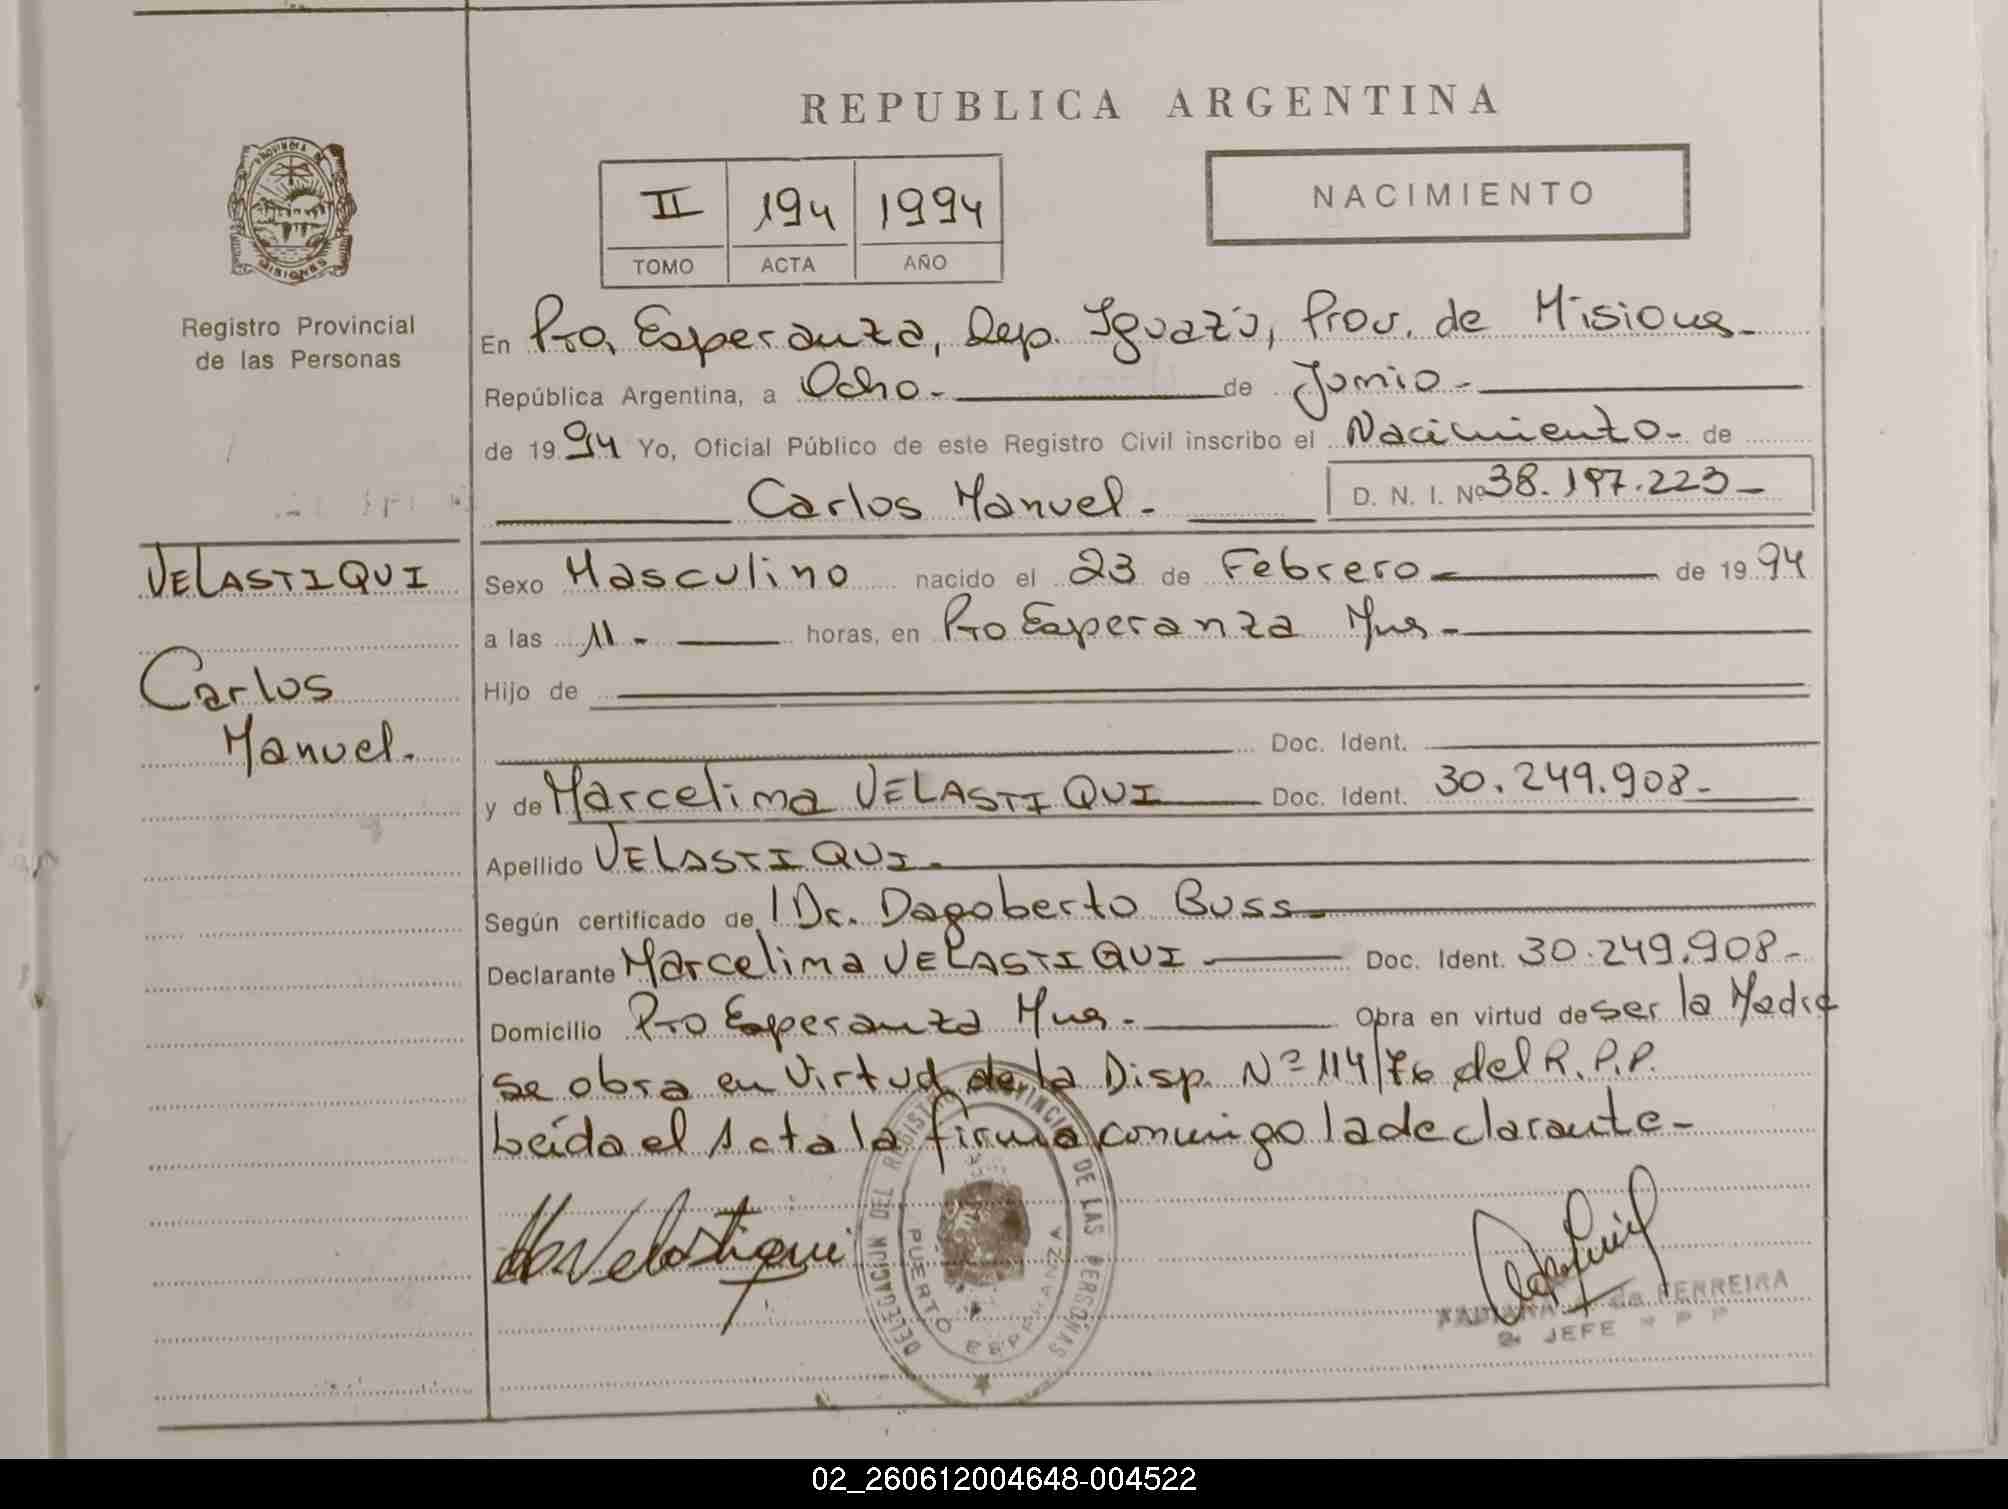 REPUBLICA ARGENTINA
PROVINCIA DE
MISIONES
Registro Provincial
de las Personas
II 194 1994
TOMO ACTA AÑO
NACIMIENTO
En Pto. Esperanza, Dep. Iguazú, Prov. de Misiones-
República Argentina, a Ocho- de Junio-
de 1994 Yo, Oficial Público de este Registro Civil inscribo el Nacimiento- de
Carlos Manuel- D. N. I. Nº 38.197.223-
VELASTIQUI
Carlos
Manuel-
Sexo Masculino nacido el 23 de Febrero de 1994
a las 11- horas, en Pto Esperanza Mnes-
Hijo de
Doc. Ident.
y de Marcelima VELASTIQUI Doc. Ident. 30.249.908-
Apellido VELASTIQUI-
Según certificado de Dr. Dagoberto Buss-
Declarante Marcelima VELASTIQUI Doc. Ident. 30.249.908-
Domicilio Pto Esperanza Mnes- Obra en virtud de ser la Madre
se obra en virtud de la Disp. Nº 114/76 del R.P.P.
Leída el Acta la firma conmigo la declarante-
Velastiqui
DELEGACION DEL REGISTRO PROVINCIAL DE LAS PERSONAS
PUERTO ESPERANZA
de FERREIRA
2º JEFE R P P
02_260612004648-004522